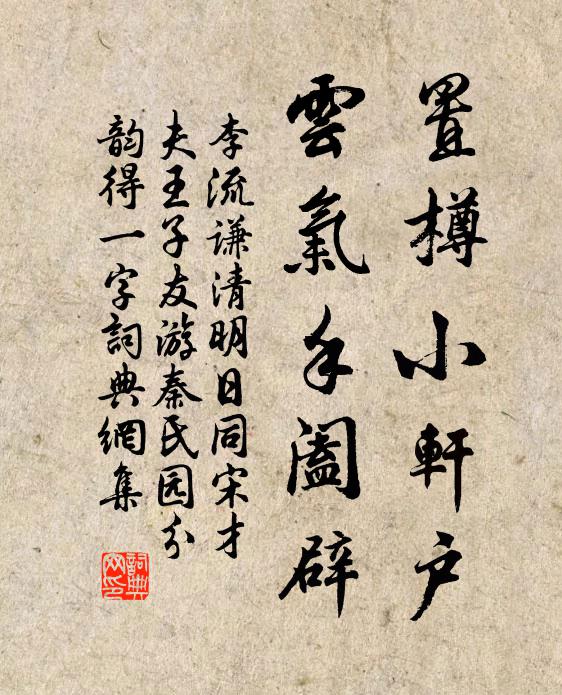 置樽小軒户
雲氣手闔辟
李流謙清明日同宋才
夫王子友游秦氏园分
韵得一字詞典網集
詞典
网印